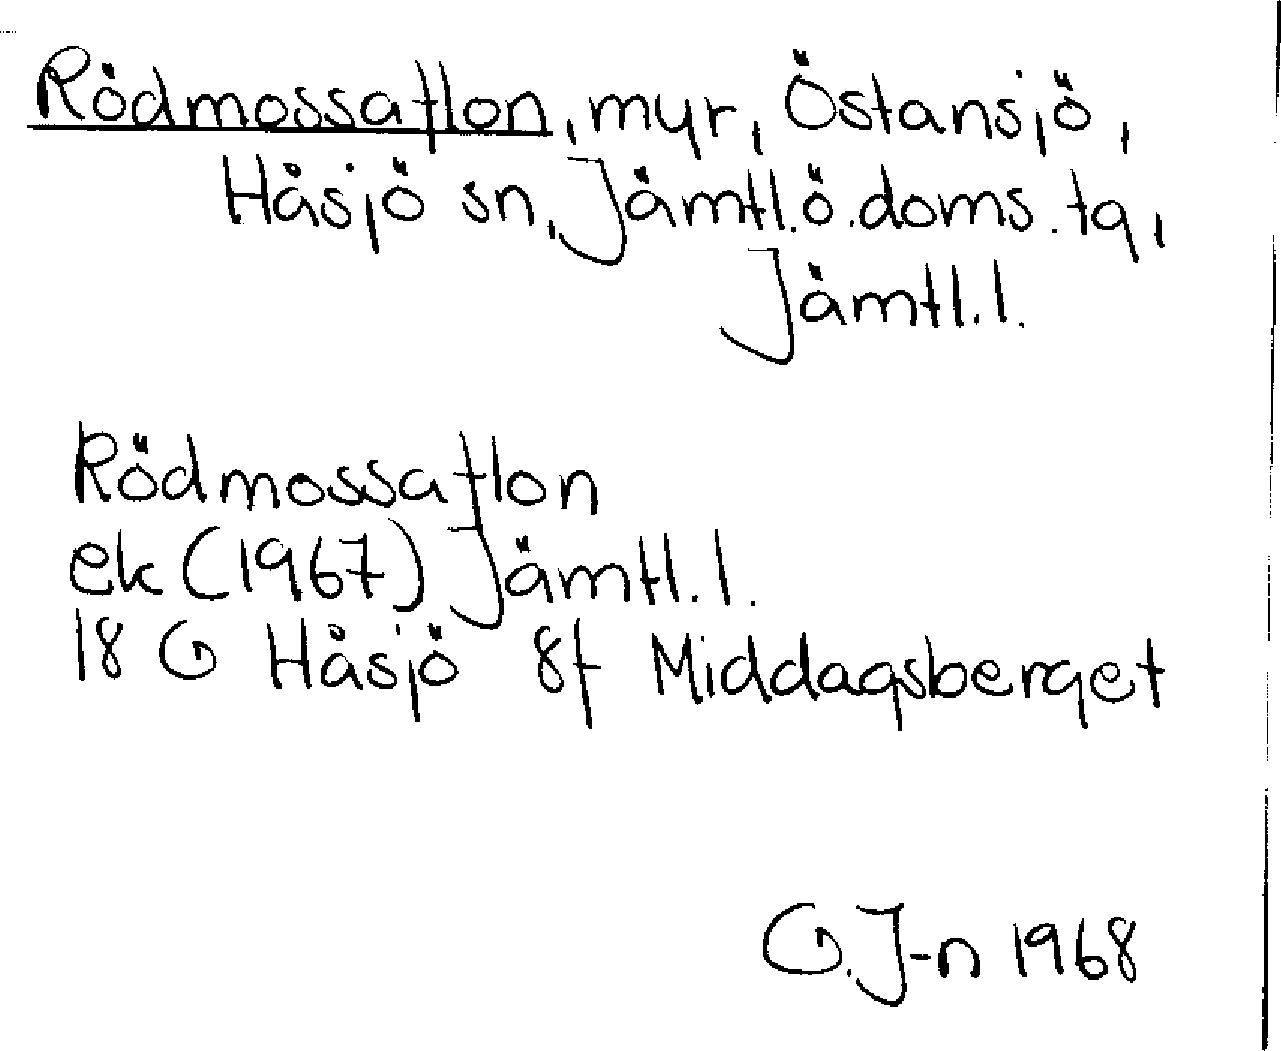 Rödmossaflon, myr, Östansjö,
Håsjö sn, Jämtl.ö.doms.tg,
Jämtl.l.
Rödmossaflon
ek (1967) Jämtl.l.
18 G Håsjö 8f Middagsberget
G.J-n 1968